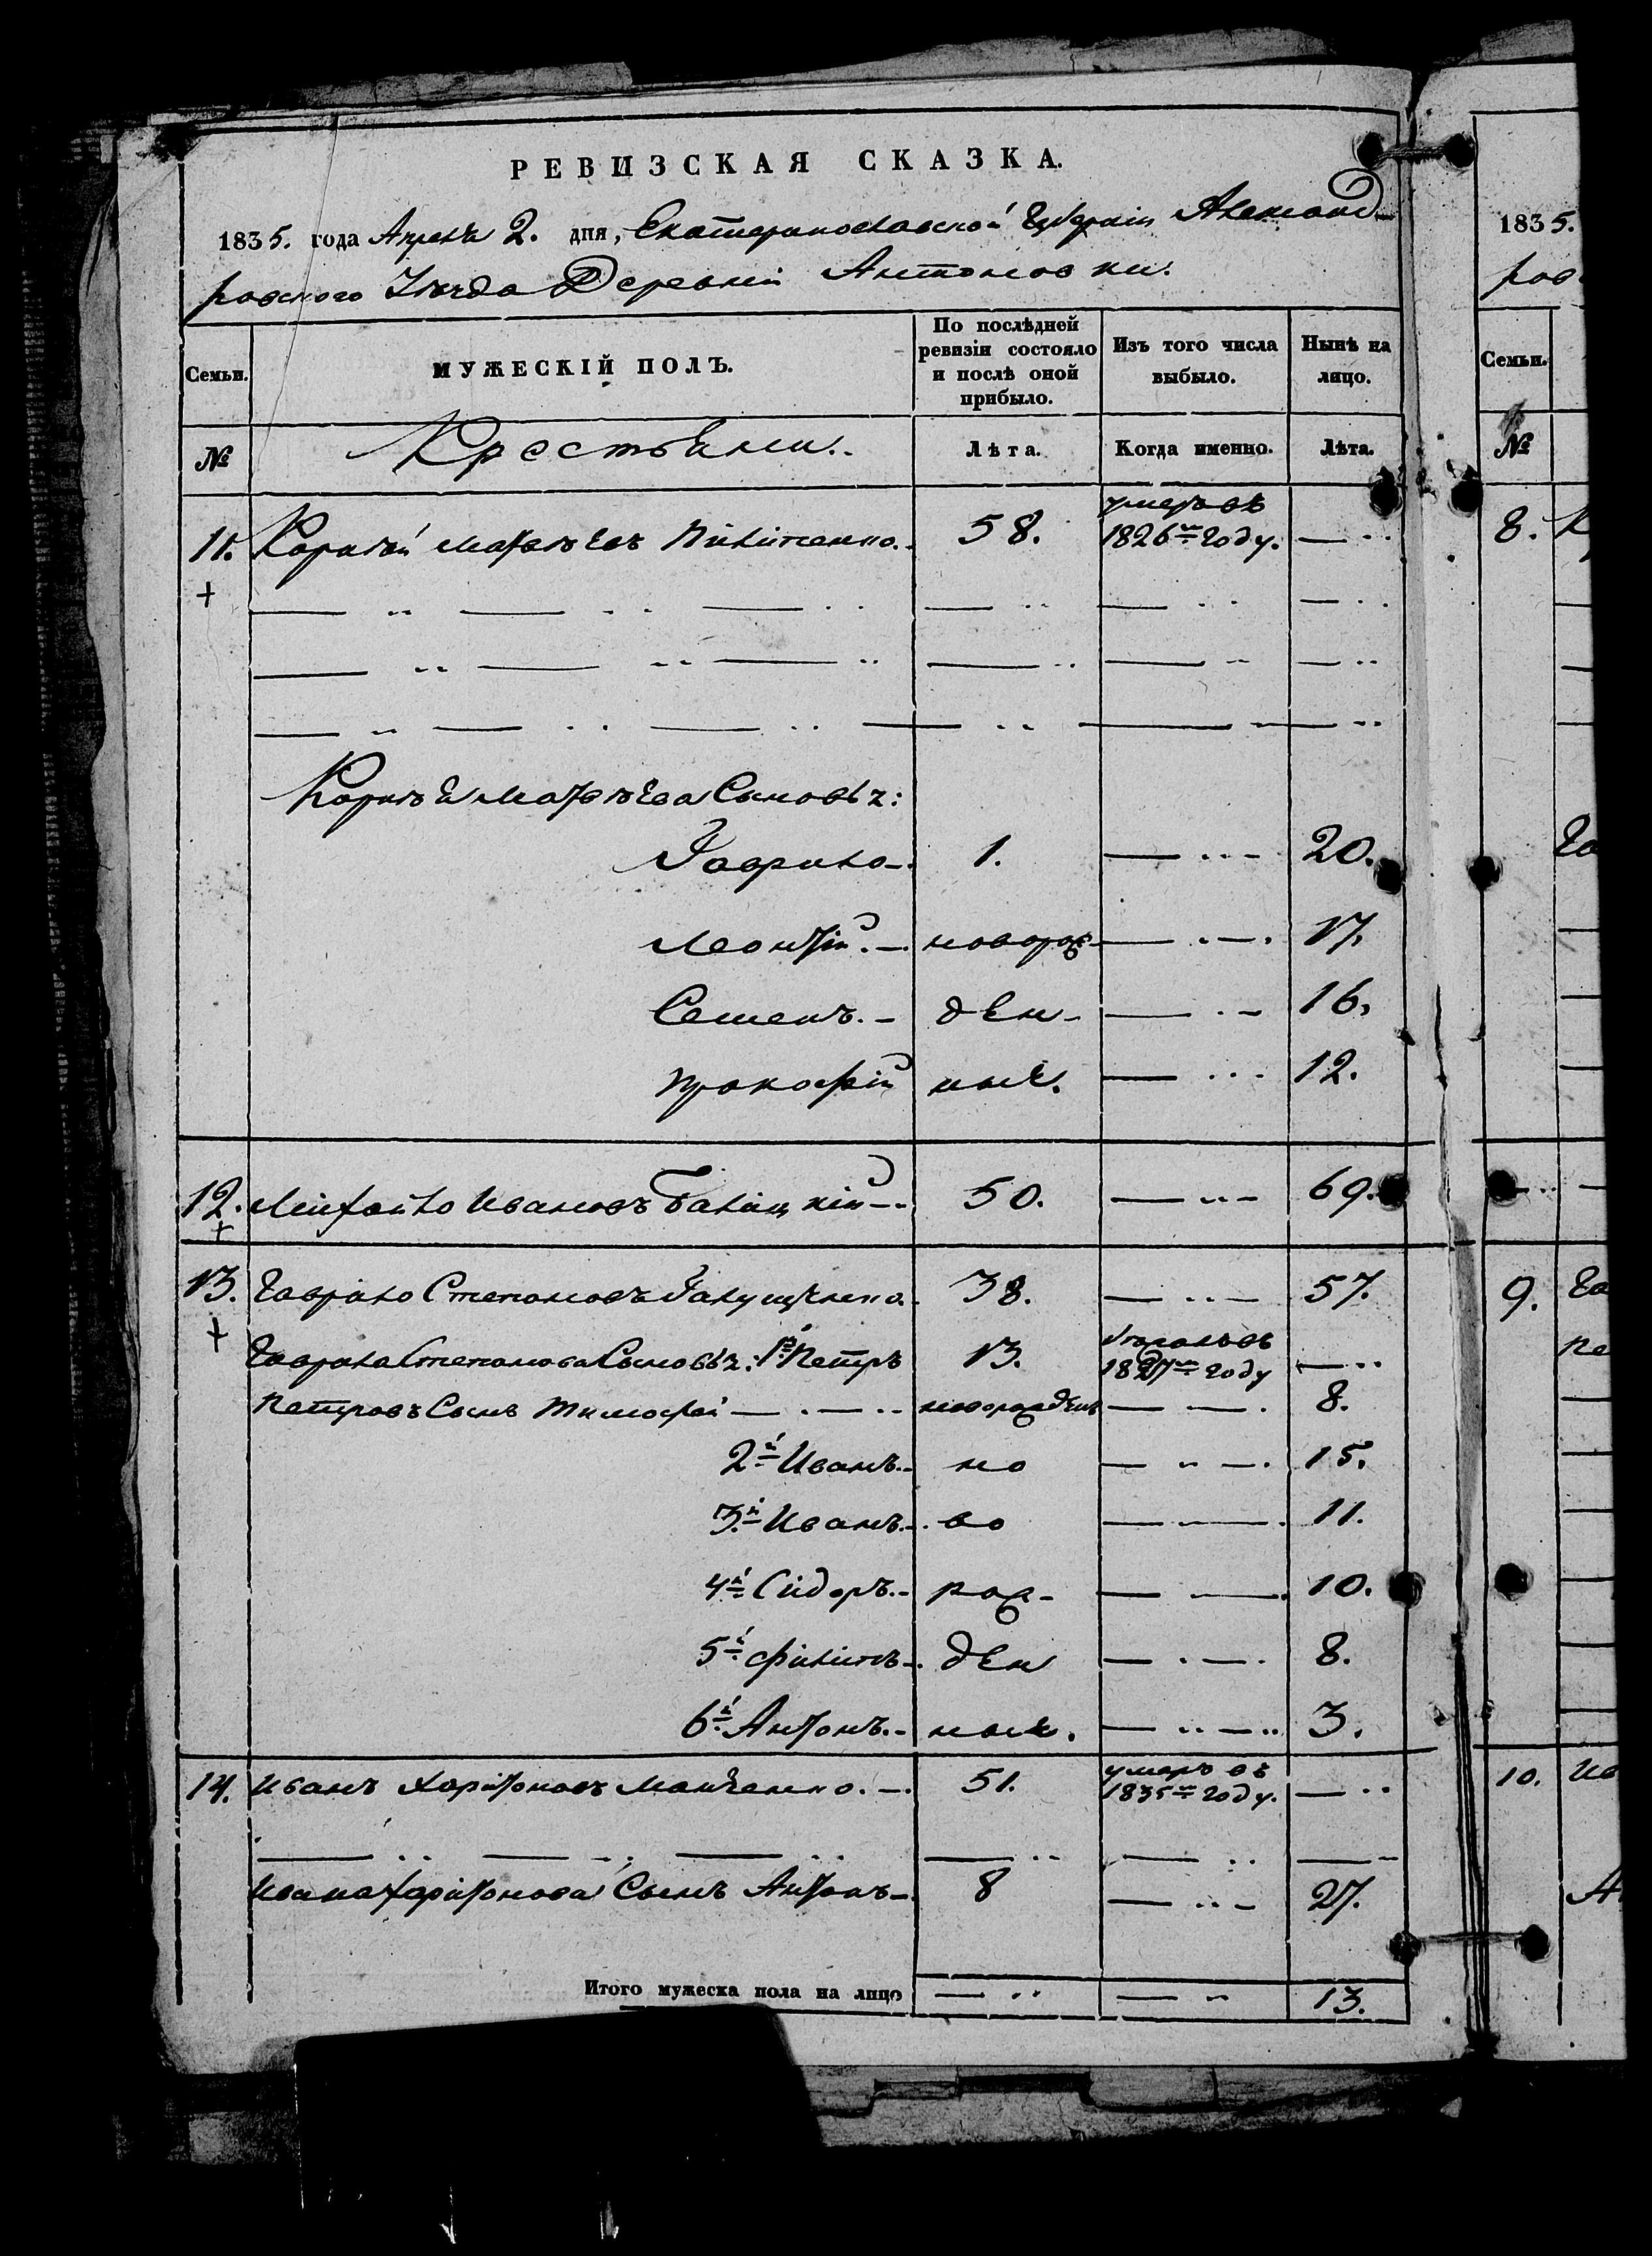 РЕВИЗСКАЯ СКАЗКА.
1835. года Апреля 2. дня, Екатеринославской Губерніи Александ-
ровского Уѣзда Деревни Антоновки.
Семьи. МУЖЕСКІЙ ПОЛЪ. По послѣдней ревизіи состояло и послѣ оной прибыло. Изъ того числа выбыло. Нынѣ на лицо.
№ Крестьяни. Лѣта. Когда именно. Лѣта.
11. Корнѣй Матвѣевъ Никитенко. 58. умеръ въ 1826м году.
Корнѣя Матвѣева Сыновья:
Гаврило 1. 20.
Леонтій новорож- 17.
Семенъ. ден- 16.
Прокофій ные. 12.
12. Михайло Ивановъ Балицкій 50. 69.
13. Гаврило Степановъ Галущенко. 38. 57.
Гаврила Степанова Сыновья: 1й Петръ 13. 1827м году
Петровъ Сынъ Тимофей новорожденъ 8.
2й Иванъ но 15.
3й Иванъ во 11.
4й Сидоръ рож- 10.
5й Филипъ ден 8.
6й Антонъ ные. 3.
14. Иванъ Харитоновъ Манченко. 51. умеръ въ 1835м году.
Ивана Харитонова Сынъ Антонъ 8 27.
Итого мужеска пола на лицо 13.
1835.
ров
Семьи.
№
8. К
Га
9. Га
Пе
10. Ив
А